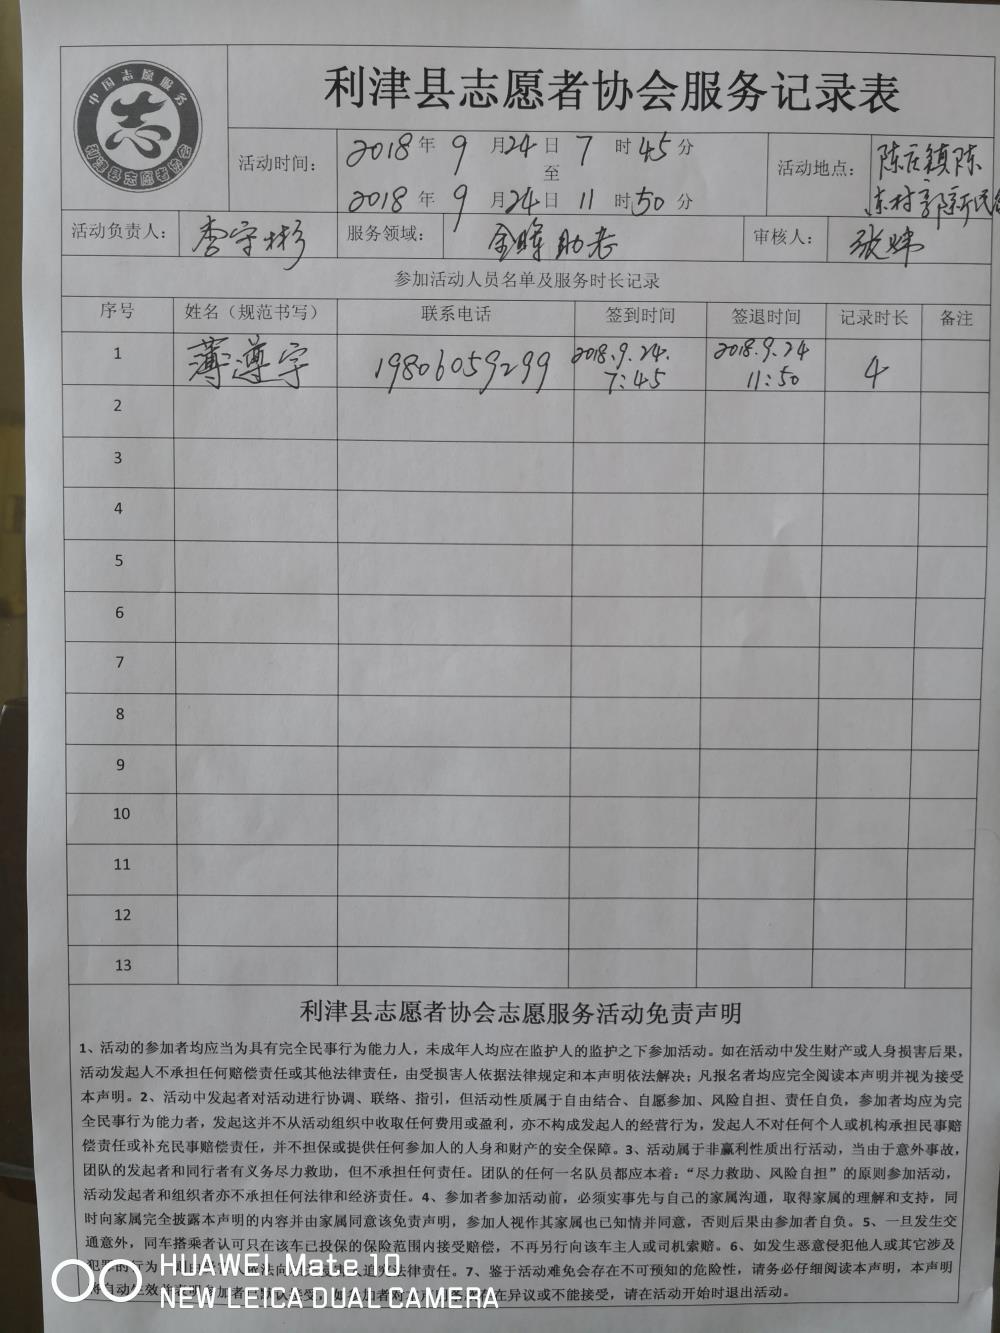 中国志愿服务
志
利津县志愿者协会
利津县志愿者协会服务记录表
活动时间：
2018年9月24日7时45分
至
2018年9月24日11时50分
活动地点：
陈庄镇陈
东村
活动负责人：
李守彬
服务领域：
金晖助老
审核人：
张炜
参加活动人员名单及服务时长记录
序号 姓名（规范书写） 联系电话 签到时间 签退时间 记录时长 备注
1 薄遵宇 19806059299 2018.9.24. 7:45 2018.9.24 11:50 4
2
3
4
5
6
7
8
9
10
11
12
13
利津县志愿者协会志愿服务活动免责声明
1、活动的参加者均应当为具有完全民事行为能力人，未成年人均应在监护人的监护之下参加活动。如在活动中发生财产或人身损害后果，
活动发起人不承担任何赔偿责任或其他法律责任，由受损害人依据法律规定和本声明依法解决；凡报名者均应完全阅读本声明并视为接受
本声明。2、活动中发起者对活动进行协调、联络、指引，但活动性质属于自由结合、自愿参加、风险自担、责任自负，参加者均应为完
全民事行为能力者，发起这并不从活动组织中收取任何费用或盈利，亦不构成发起人的经营行为，发起人不对任何个人或机构承担民事赔
偿责任或补充民事赔偿责任，并不担保或提供任何参加人的人身和财产的安全保障。3、活动属于非赢利性质出行活动，当由于意外事故，
团队的发起者和同行者有义务尽力救助，但不承担任何责任。团队的任何一名队员都应本着：“尽力救助、风险自担”的原则参加活动，
活动发起者和组织者亦不承担任何法律和经济责任。4、参加者参加活动前，必须实事先与自己的家属沟通，取得家属的理解和支持，同
时向家属完全披露本声明的内容并由家属同意该免责声明，参加人视作其家属也已知情并同意，否则后果由参加者自负。5、一旦发生交
通意外，同车搭乘者认可只在该车已投保的保险范围内接受赔偿，不再另行向该车主人或司机索赔。6、如发生恶意侵犯他人或其它涉及
法律责任。7、鉴于活动难免会存在不可预知的危险性，请务必仔细阅读本声明，本声明
存在异议或不能接受，请在活动开始时退出活动。
HUAWEI Mate 10
NEW LEICA DUAL CAMERA